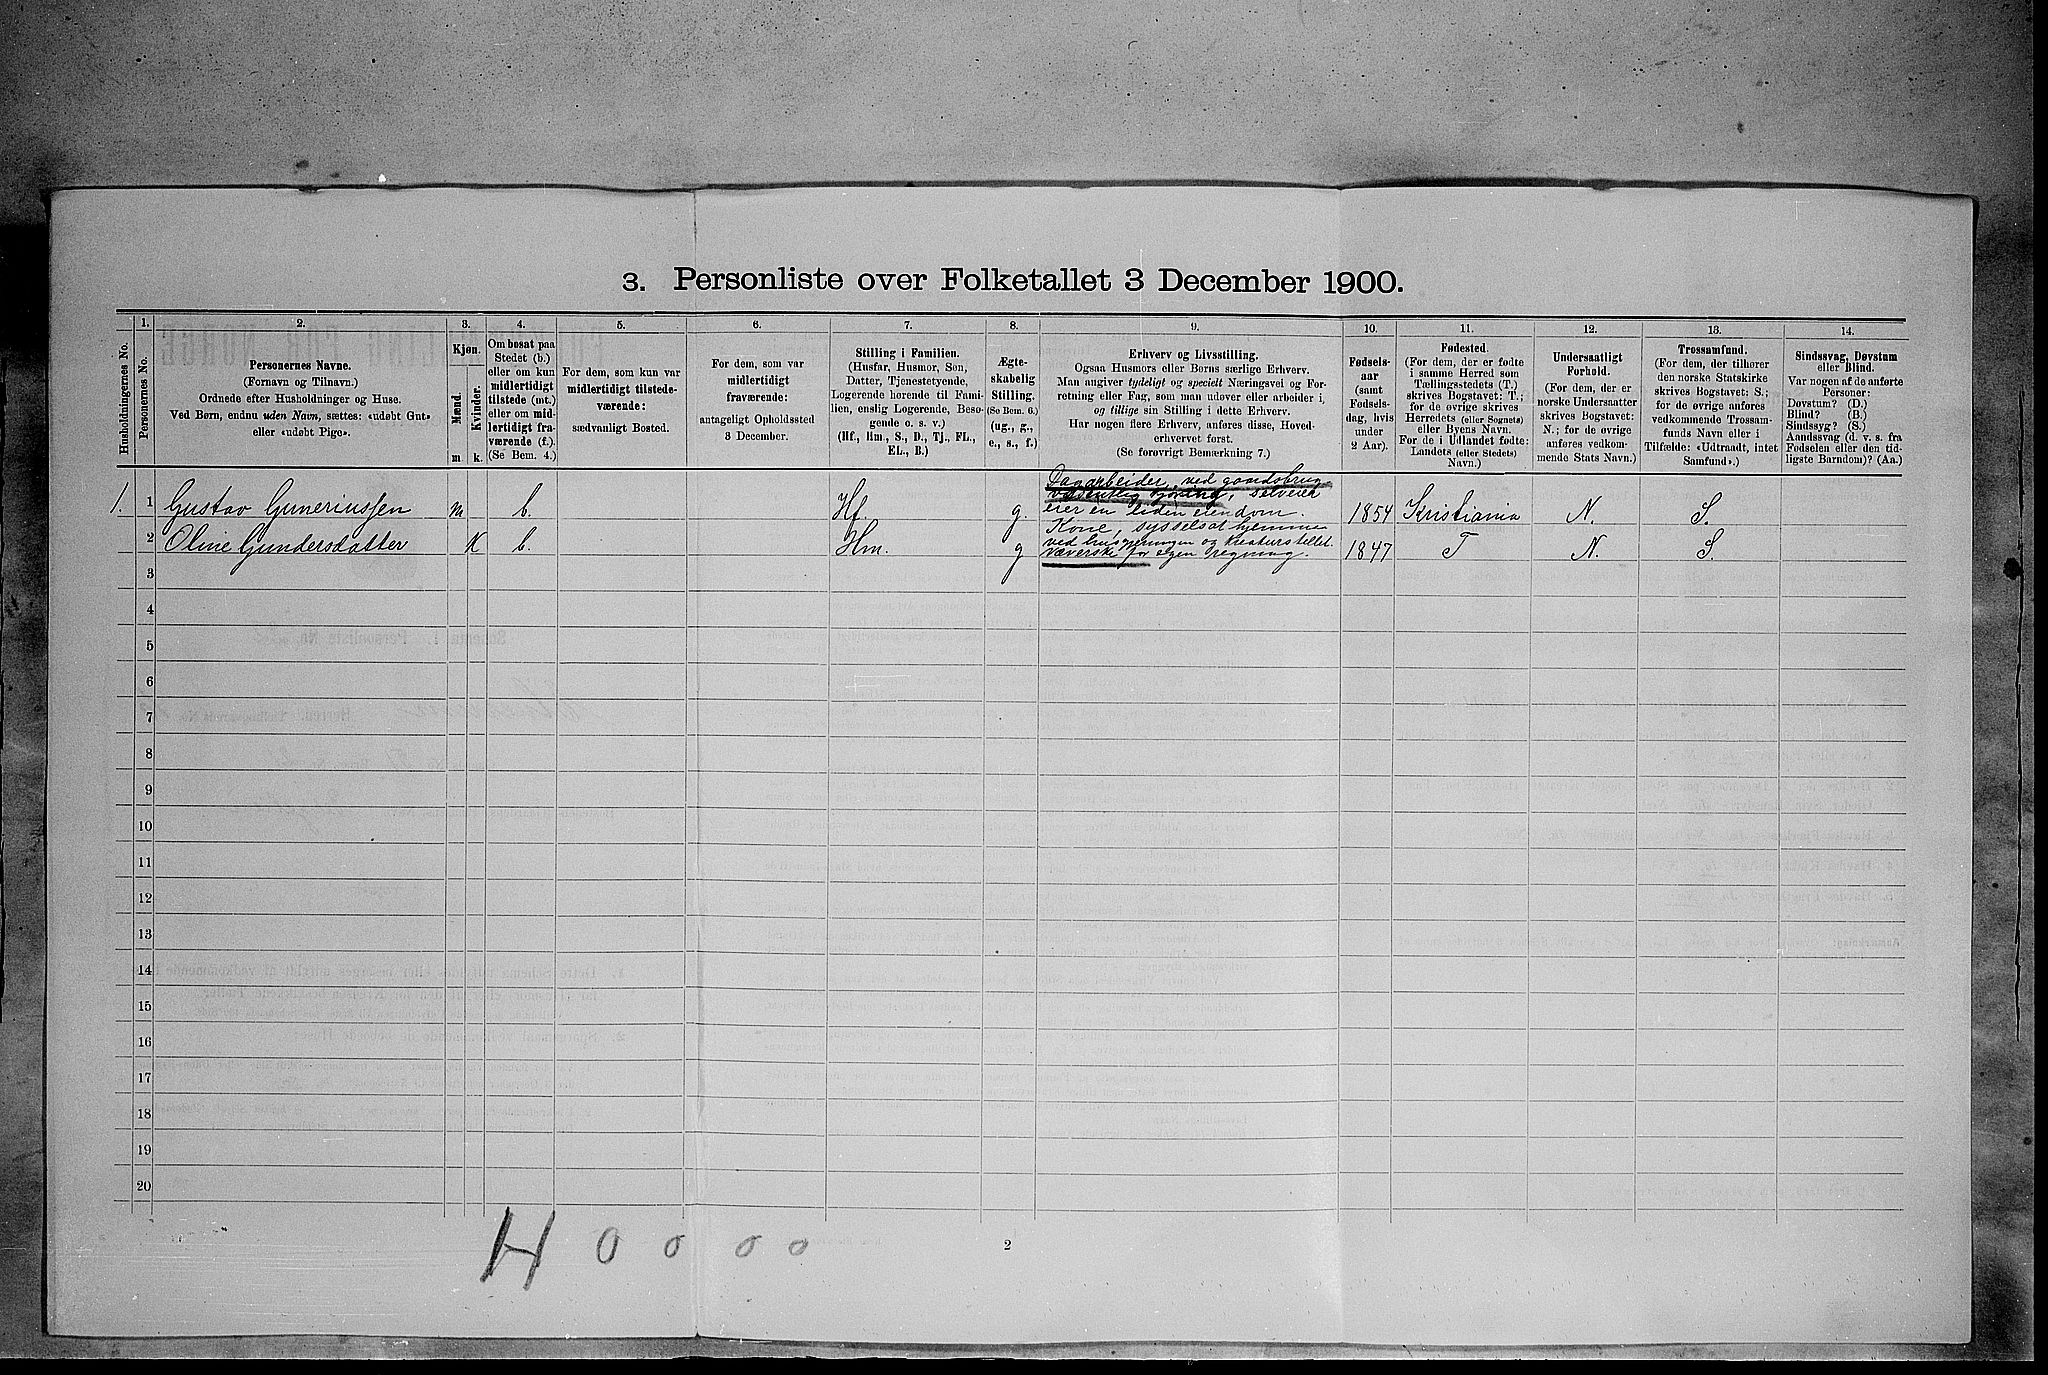 3. Personliste over Folketallet 3 December 1900.
Husholdningernes No.
1.
Personernes No.
2.
Personernes Navne.
(Fornavn og Tilnavn.)
Ordnede efter Husholdninger og Huse.
Ved Børn, endnu uden Navn, sættes: «udøbt Gut»
eller «udøbt Pige».
3.
Kjøn.
Mænd.
Kvinder.
m
k.
4.
Om bosat paa
Stedet (b.)
eller om kun
midlertidigt
tilstede (mt.)
eller om mid-
lertidigt fra-
værende (f.).
(Se Bem. 4.)
5.
For dem, som kun var
midlertidigt tilstede-
værende:
sædvanligt Bosted.
6.
For dem, som var
midlertidigt
fraværende:
antageligt Opholdssted
3 December.
7.
Stilling i Familien.
(Husfar, Husmor, Søn,
Datter, Tjenestetyende,
Logerende hørende til Fami-
lien, enslig Logerende, Besø-
gende o. s. v.)
(Hf., Hm., S., D., Tj., FL.,
EL., B.)
8.
Ægte-
skabelig
Stilling.
(Se Bem. 6.)
(ug., g.,
e., s., f.)
9.
Erhverv og Livsstilling.
Ogsaa Husmors eller Børns særlige Erhverv.
Man angiver tydeligt og specielt Næringsvei og For-
retning eller Fag, som man udøver eller arbeider i,
og tillige sin Stilling i dette Erhverv.
Har nogen flere Erhverv, anføres disse, Hoved-
erhvervet først.
(Se forøvrigt Bemærkning 7.)
10.
Fødsels-
aar
(samt
Fødsels-
dag, hvis
under
2 Aar).
11.
Fødested.
(For dem, der er fødte
i samme Herred som
Tællingsstedets (T.)
skrives Bogstavet: T.;
for de øvrige skrives
Herredets (eller Sognets)
eller Byens Navn.
For de i Udlandet fødte:
Landets (eller Stedets)
Navn.)
12.
Undersaatligt
Forhold.
(For dem, der er
norske Undersaatter
skrives Bogstavet:
N.; for de øvrige
anføres vedkom-
mende Stats Navn.)
13.
Trossamfund.
(For dem, der tilhører
den norske Statskirke
skrives Bogstavet: S.;
for de øvrige anføres
vedkommende Trossam-
funds Navn eller i
Tilfælde: «Udtraadt, intet
Samfund».)
14.
Sindssvag, Døvstum
eller Blind.
Var nogen af de anførte
Personer:
Døvstum? (D.)
Blind? (B.)
Sindssyg? (S.)
Aandssvag (d. v. s. fra
Fødselen eller den tid-
ligste Barndom)? (Aa.)
1. 1 Gustav Guneriussen m b. Hf. g. 1854 Kristiania N. S.
Dagarbeider, ved gaardsbrug
væsentlig kjøring, selveier
eier en liden eiendom.
2 Oline Gundersdatter K b. Hm. g 1847 T N. S.
Kone, sysselsat hjemme
ved husgjerningen og kreaturstellet.
Væverske for egen regning.
3
4
5
6
7
8
9
10
11
12
13
14
15
16
17
18
19
20
H 0 0 0 0
2